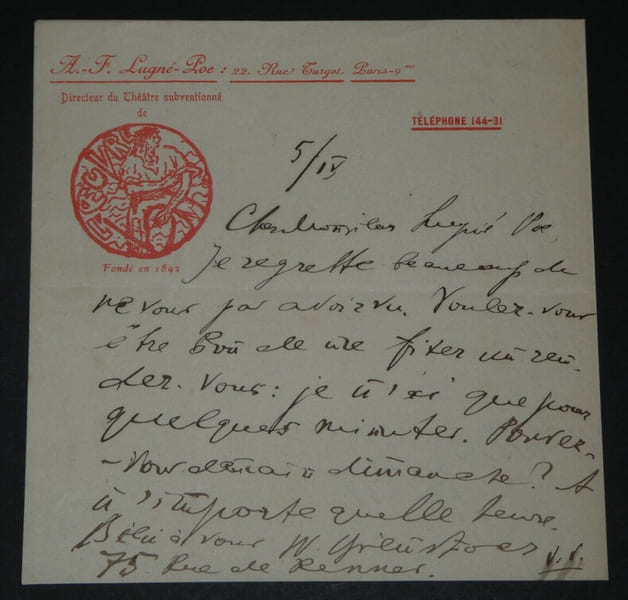 A.-F. Lugné-Poe : 22, Rue Turgot, Paris-9me
Directeur du Théâtre subventionné
de
L'ŒUVRE
Fondé en 1892
TÉLÉPHONE 144-31
5/IV
Cher Monsieur Lugné Poe,
Je regrette beaucoup de
ne vous pas avoir vu. Voulez-vous
être bon de me fixer un ren-
dez-vous: je n'ai que pour
quelques minutes. Pouvez-
-vous demain dimanche? A
n'importe quelle heure.
Bien à vous W.
75 Rue de Rennes.